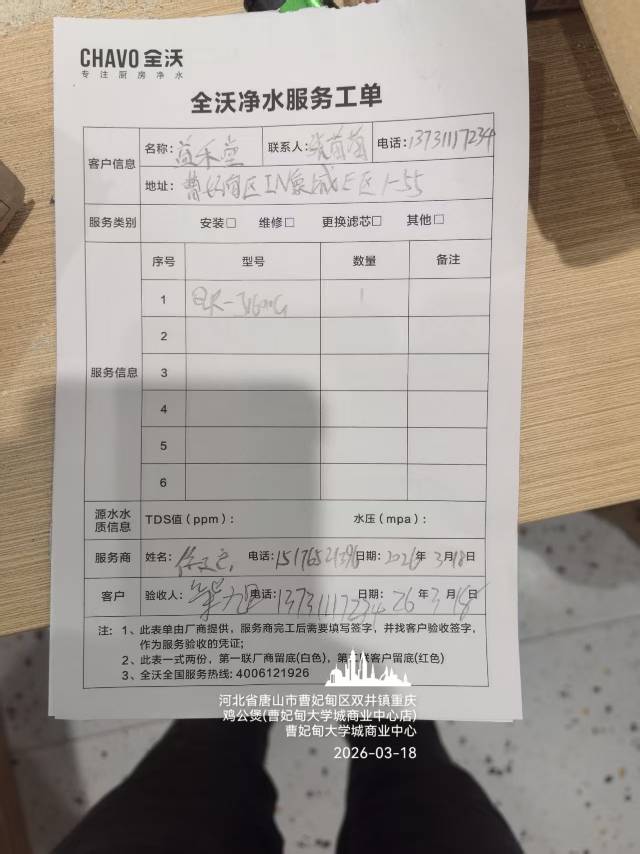 CHAVO 全沃
专注厨房净水
全沃净水服务工单
客户信息
名称: 联系人: 电话: 13731117234
地址: 曹妃甸区IN象城E区1-55
服务类别 安装□ 维修□ 更换滤芯□ 其他□
服务信息
序号 型号 数量 备注
1 1
2
3
4
5
6
源水水质信息 TDS值（ppm）: 水压（mpa）:
服务商 姓名: 电话: 日期: 2026年3月18日
客户 验收人: 电话: 13731117234 日期: 26年3月18日
注: 1、此表单由厂商提供，服务商完工后需要填写签字，并找客户验收签字，
作为服务验收的凭证;
2、此表一式两份，第一联厂商留底(白色)，第二联客户留底(红色)
3、全沃全国服务热线: 4006121926
河北省唐山市曹妃甸区双井镇重庆
鸡公煲(曹妃甸大学城商业中心店)
曹妃甸大学城商业中心
2026-03-18